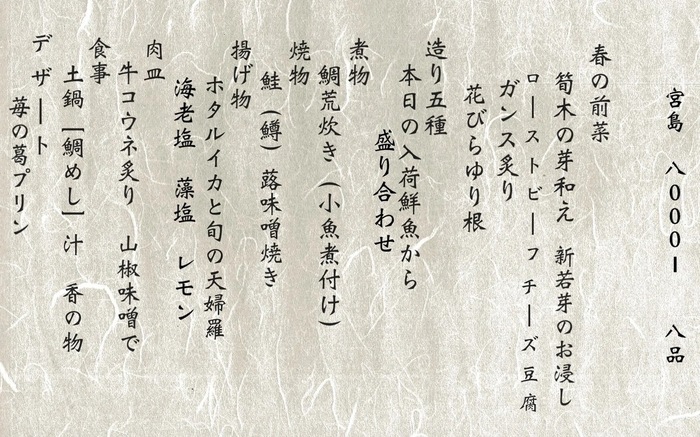 宮島　八000ー　八品
春の前菜
筍木の芽和え　新若芽のお浸し
ローストビーフ　チーズ豆腐
ガンス炙り
花びらゆり根
造り五種
本日の入荷鮮魚から
盛り合わせ
煮物
鯛荒炊き（小魚煮付け）
焼物
鮭（鱒）蕗味噌焼き
揚げ物
ホタルイカと旬の天婦羅
海老塩　藻塩　レモン
肉皿
牛コウネ炙り　山椒味噌で
食事
土鍋［鯛めし］汁　香の物
デザート
苺の葛プリン